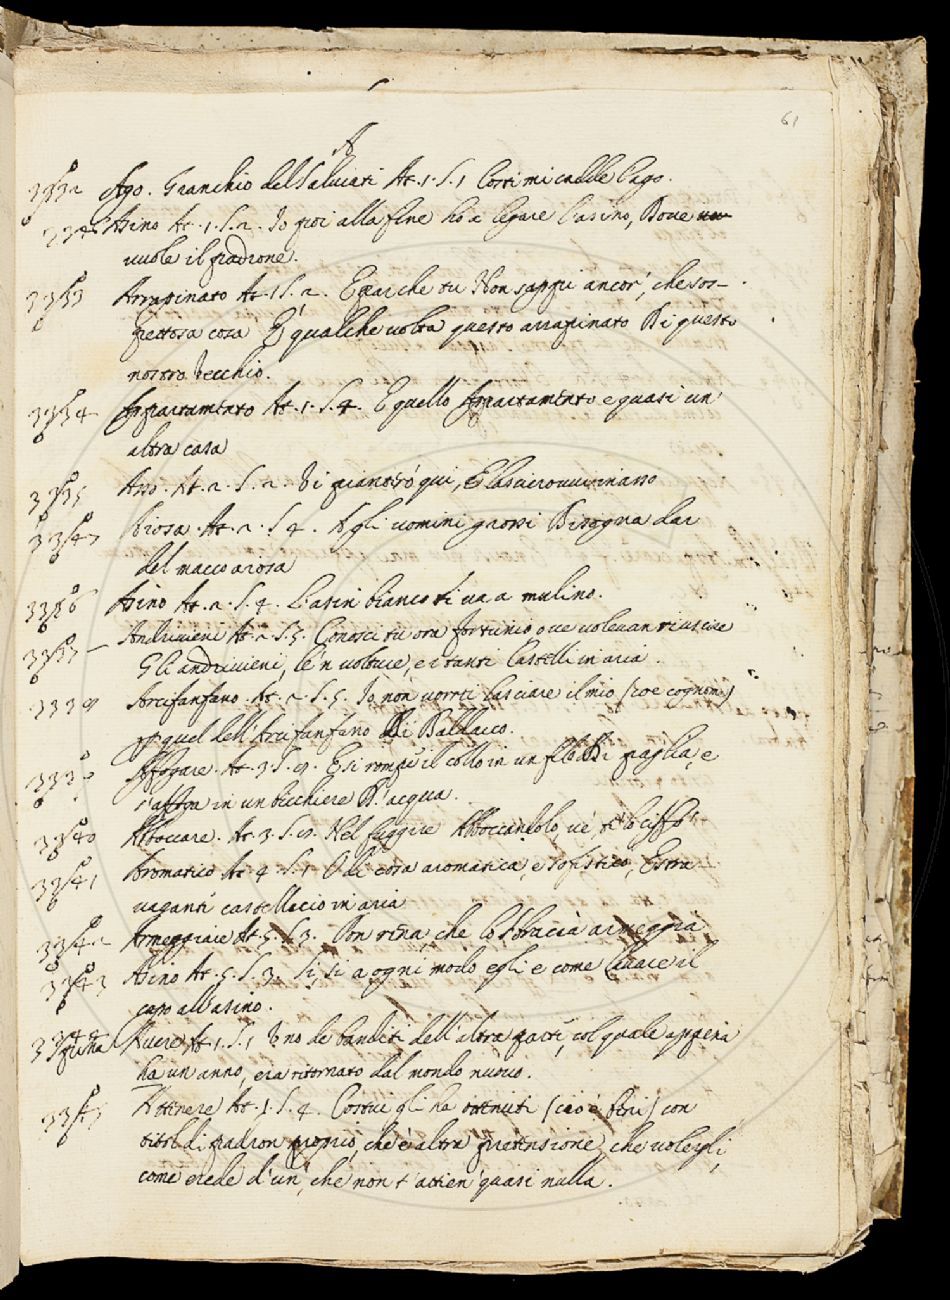 61
A
Ago. Granchio del Salviati At. 1. S. 1 Costì mi cadde l'ago.
334 Asino At. 1. S. 2. Io poi alla fine ho a legare l'asino, Dove
vuole il padrone.
3333 Arrapinato At. 1 S. 2. E par che tu Non sappi ancor', che sos-
pettosa cosa E' qualche volta questo arrapinato Di questo
nostro Vecchio.
3334 Appartamento At. 1. S. 4. E quello Appartamento e quasi un
altra casa
3335 Asso. At. 2. S. 2. Vi pianterò qui, E lascierovvi in asso
3347 Arosa At. 2. S. 4. A gli uomini grossi Bisogna dar
del macco a iosa
3336 Asino At. 2. S. 4. L'asin bianco ti va a mulino.
Andirivieni At. 2 S. 5. Conosci tu ora fortunio ove volevan riuscire
Gli andirivieni, le'n volture, e i tanti Castelli in aria.
3339 Arcifanfano. At. 2. S. 5. Io non vorrei lasciare il mio (cioe cognome)
p quel dell'Arcifanfano Di Baldacco.
Affogare. At. 3. S. 9. E si rompe il collo in un fil Di paglia, e
s'affoga in un bicchiere D'acqua.
3340 Abboccare. At. 3. S. Nel fuggire Abboccandolo, ve lo ciuffò
3341 Aromatico At. 4. S. 1 O di cosa aromatica, e sofistico, Estra-
vaganti castellaccio in aria
3342 Armeggiare At. 5. S. 3. Con rina che le braccia armeggia
3343 Asino At. 5. S. 3. Si, si a ogni modo egli e come lavare il
capo all'asino.
Avere At. 1. S. 1 Uno de banditi dell'altra parte, col quale appena
ha un anno, era ritornato dal mondo nuovo.
3345 Attenere At. 1. S. 4. Costui gli ha tenuti (cio è fini) con
titol di padron proprio, che è altra pretensione, che volergli,
come erede d'un, che non t'attien' quasi nulla.